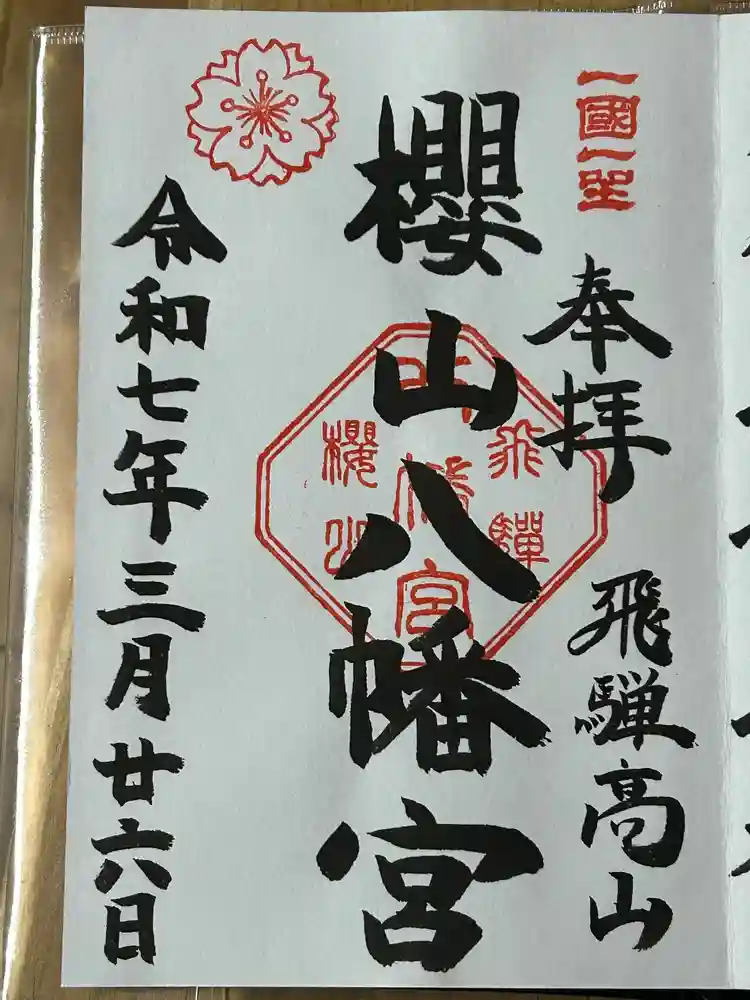 一國一社
奉拝
飛騨高山
櫻山八幡宮
飛驒
八幡宮
櫻山
令和七年三月廿六日